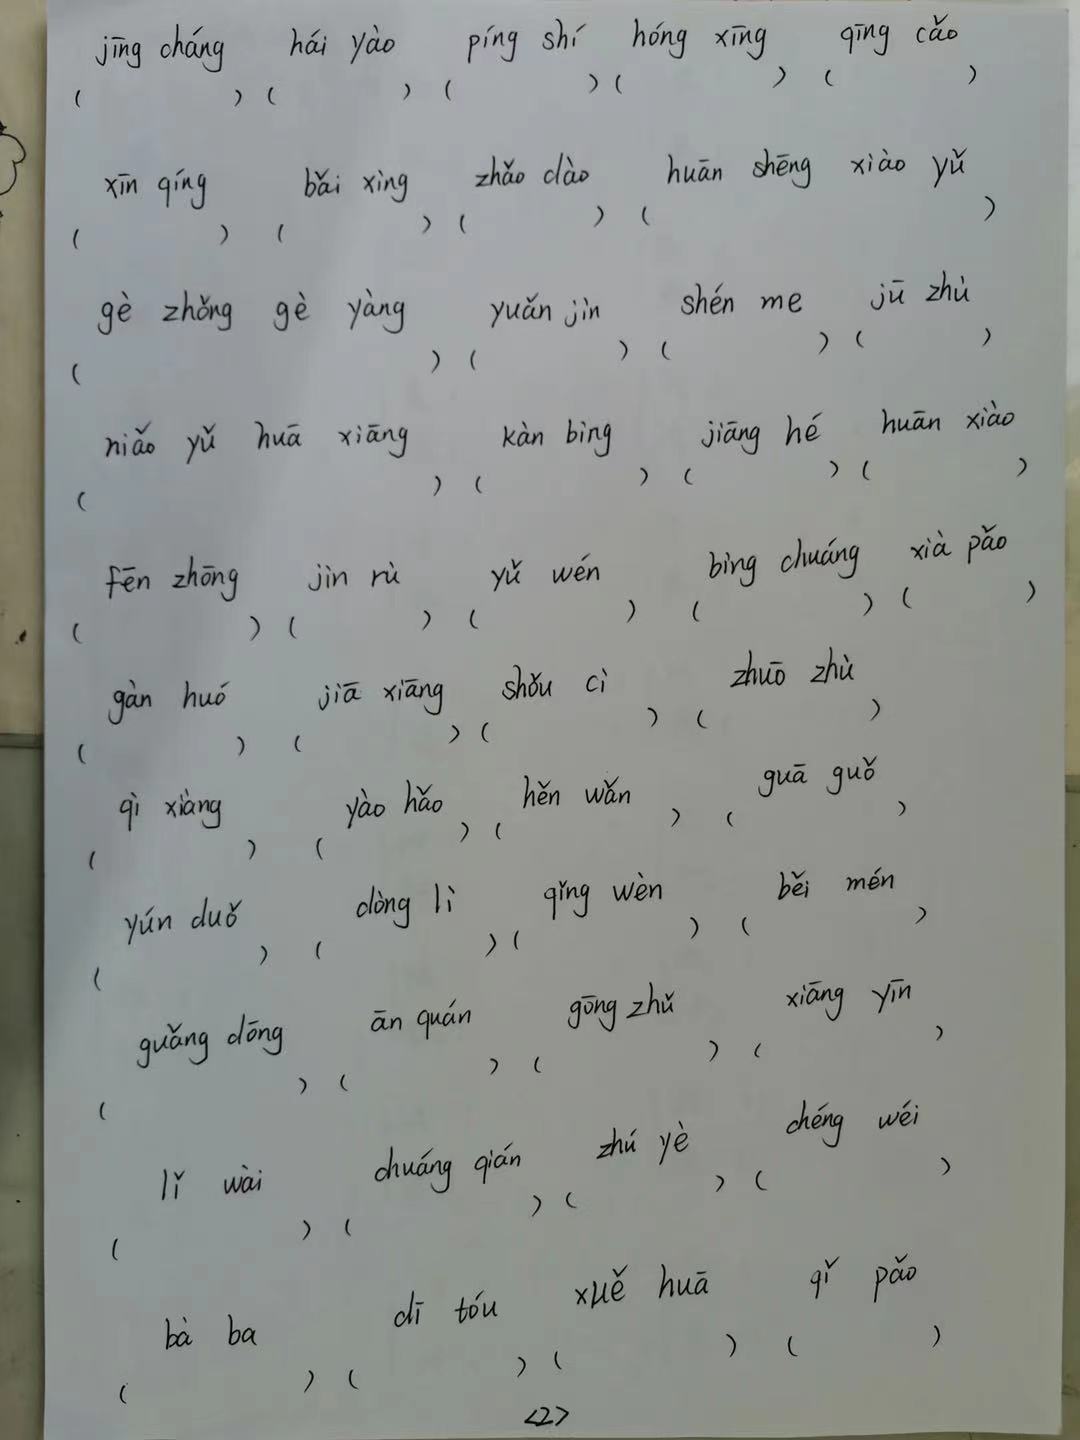 jīng cháng hái yào píng shí hóng xīng qīng cǎo
( ) ( ) ( ) ( ) ( )
xīn qíng bǎi xìng zhǎo dào huān shēng xiào yǔ
( ) ( ) ( ) ( )
gè zhǒng gè yàng yuǎn jìn shén me jū zhù
( ) ( ) ( ) ( )
niǎo yǔ huā xiāng kàn bìng jiāng hé huān xiào
( ) ( ) ( ) ( )
fēn zhōng jìn rù yǔ wén bìng chuáng xià pǎo
( ) ( ) ( ) ( ) ( )
gàn huó jiā xiāng shǒu cì zhuō zhù
( ) ( ) ( ) ( )
qì xiàng yào hǎo hěn wǎn guā guǒ
( ) ( ) ( ) ( )
yún duǒ dòng lì qǐng wèn běi mén
( ) ( ) ( ) ( )
guǎng dōng ān quán gōng zhǔ xiāng yīn
( ) ( ) ( ) ( )
lǐ wài chuáng qián zhú yè chéng wéi
( ) ( ) ( ) ( )
bà ba dī tóu xuě huā qǐ pǎo
( ) ( ) ( ) ( )
<2>